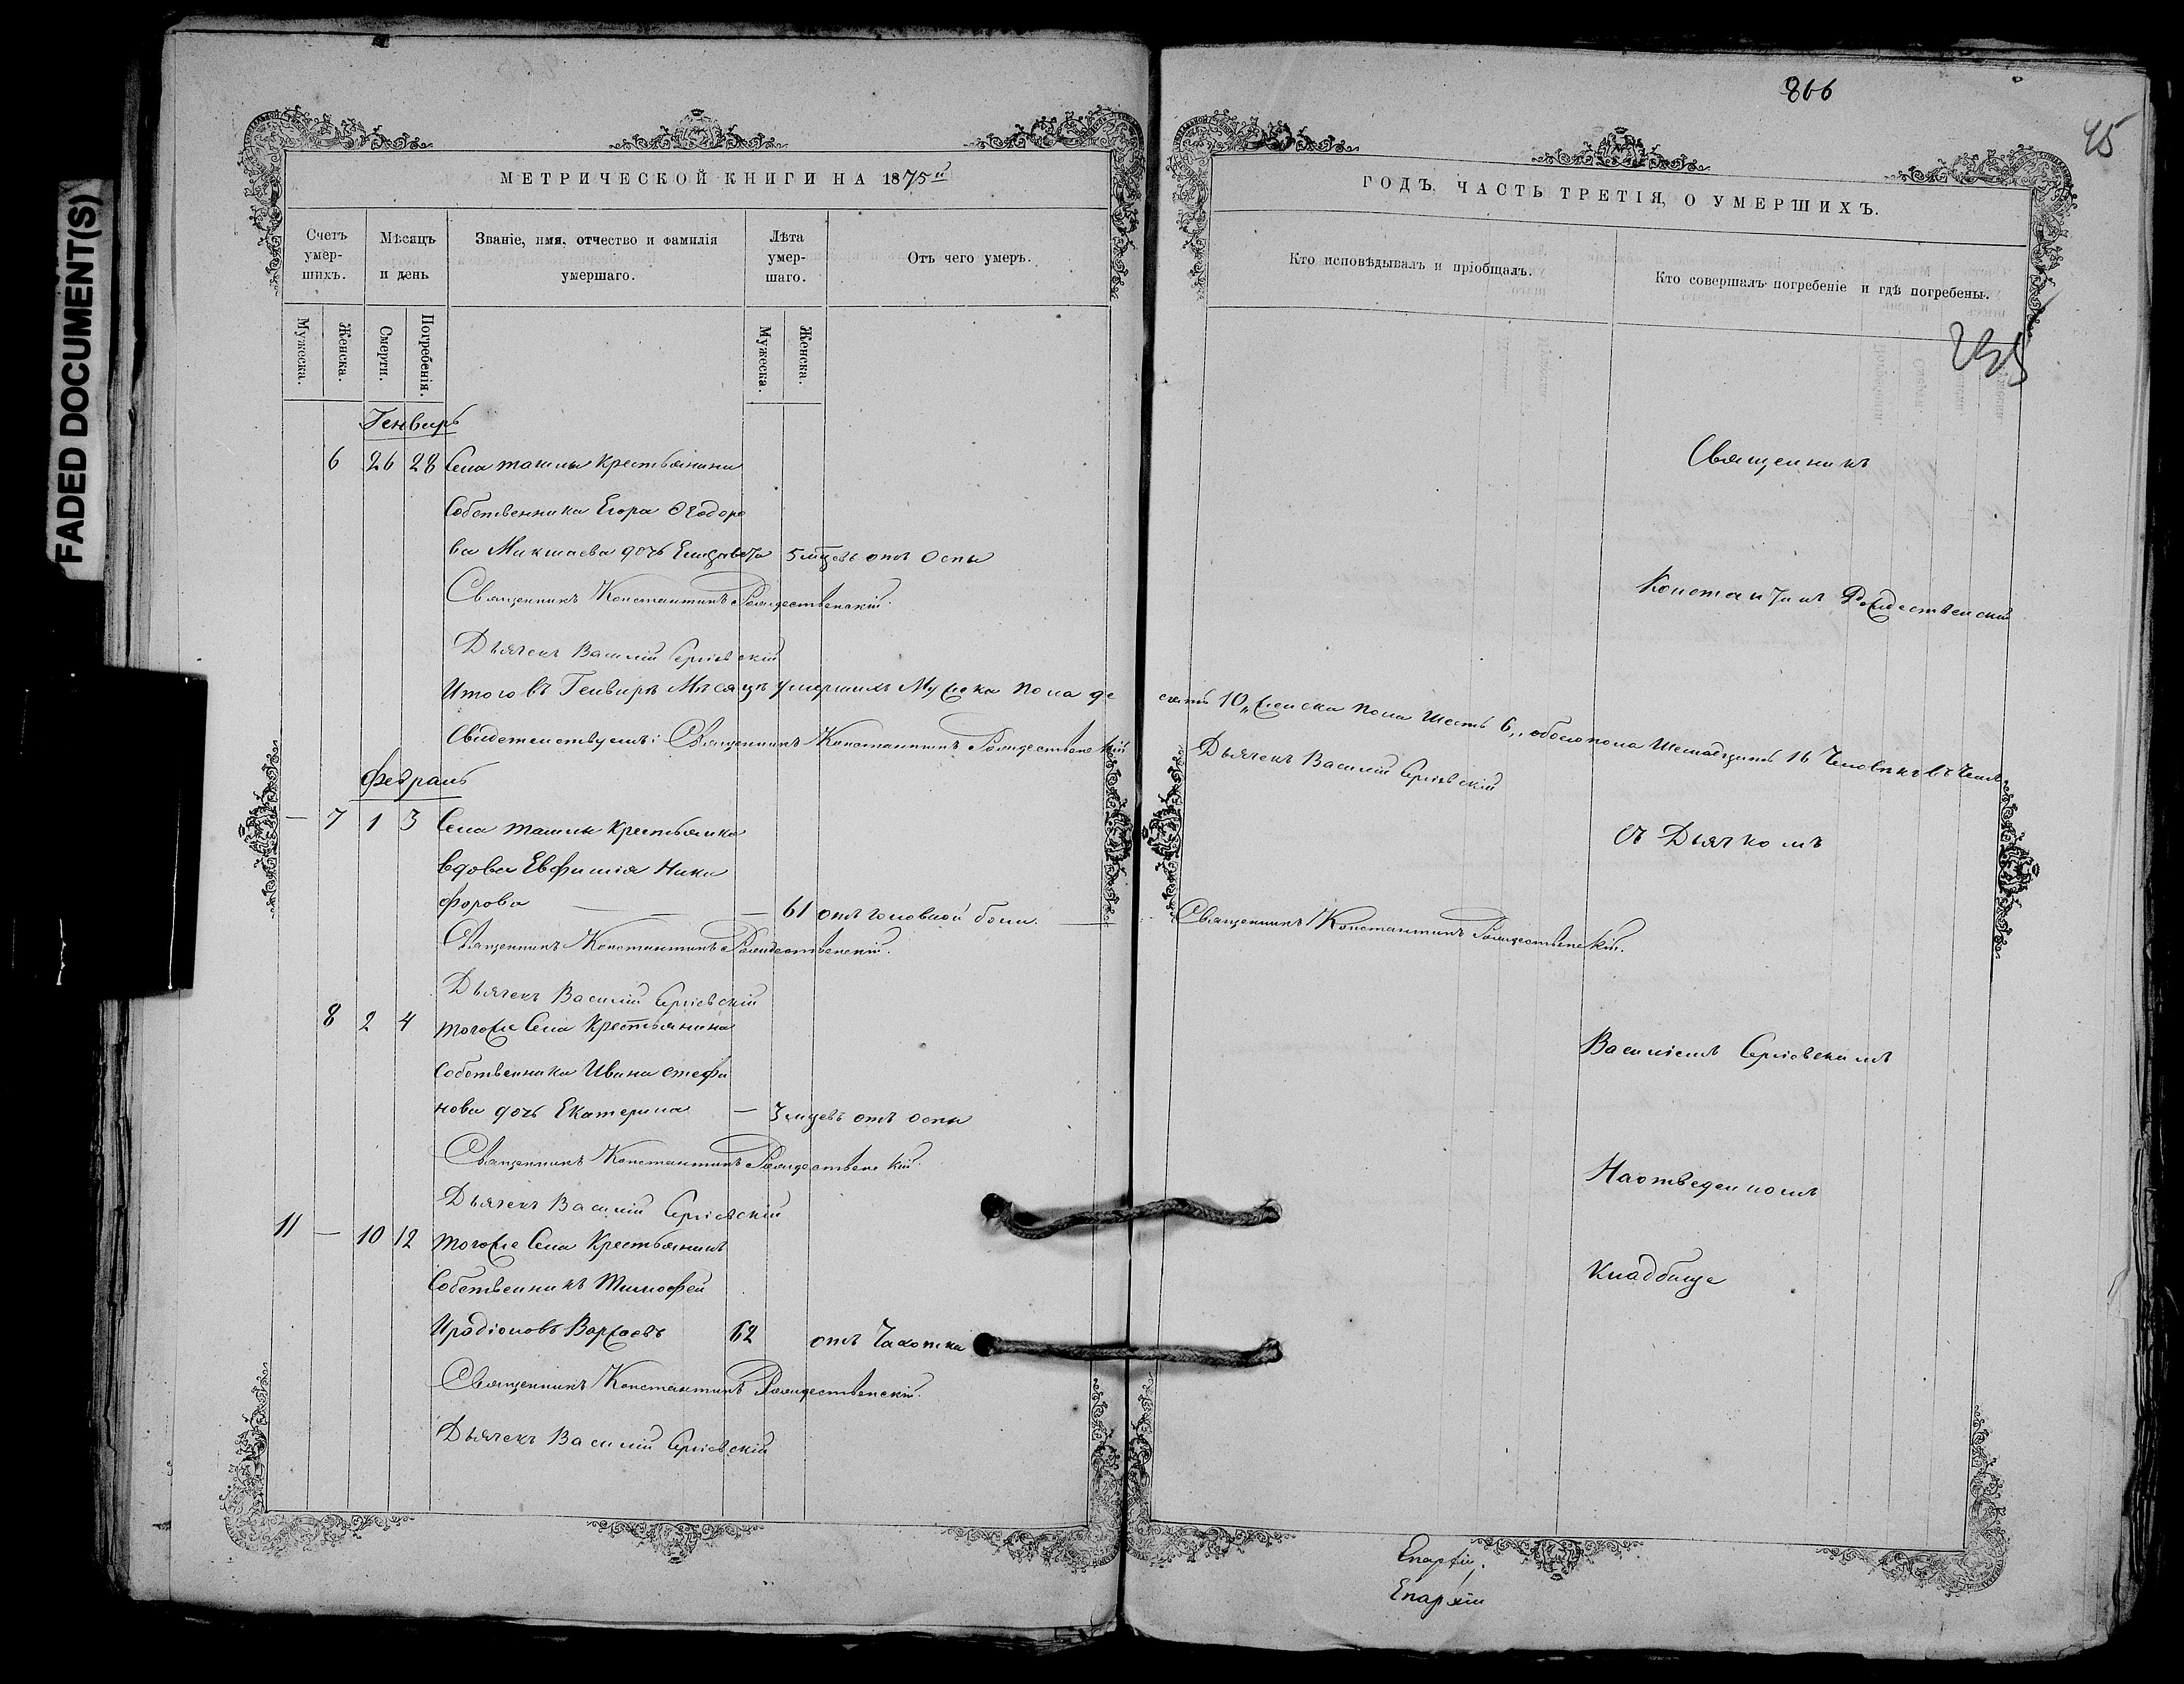 FADED DOCUMENT(S)
866
45
МЕТРИЧЕСКОЙ КНИГИ НА 1875й
ГОДЪ, ЧАСТЬ ТРЕТІЯ, О УМЕРШИХЪ.
Счетъ умер-шихъ.
Мѣсяцъ и день
Званіе, имя, отчество и фамилія умершаго.
Лѣта умер-шаго.
Отъ чего умеръ.
Кто исповѣдывалъ и пріобщалъ.
Кто совершалъ погребеніе и гдѣ погребены.
Мужеска.
Женска.
Смерти.
Погребенія.
Мужеска.
Женска.
Генварь
6 26 28 Села ташлы крестьянина
Собственника Егора Ѳеодоро
ва Микшаева дочь Елизавета 5 мцевъ отъ Оспы
Священникъ Константинъ Рождественскій.
Дьячекъ Василій Сергіевскій
Итого въ Генварѣ Мѣсяцѣ умершихъ Мужска пола де
сять 10, женска пола шесть 6, обоего пола шестнадцать 16 Человѣкъ въ Чемъ
Свидетельствуемъ: Священникъ Константинъ Рождественскій
Дьячекъ Василій Сергіевскій
Февраль
— 7 1 3 Села ташлы крестьянка
вдова Евфимія Ники
форова — 61 отъ головной боли.
Священникъ Константинъ Рождественскій.
Священникъ Константинъ Рождественскій.
Дьячекъ Василій Сергіевскій
8 2 4 тогоже Села Крестьянина
Собственника Ивана Стефа
нова дочь Екатерина — 3 мцевъ отъ оспы
Священникъ Константинъ Рождественскій.
Дьячекъ Василій Сергіевскій
11 — 10 12 тогоже Села Крестьянинъ
Собственникъ Тимофей
Иродіоновъ 62 отъ Чахотки
Священникъ Константинъ Рождественскій.
Дьячекъ Василій Сергіевскій
Священникъ
Константинъ Рождественскій
съ Дьячкомъ
Василіемъ Сергіевскимъ
На отведенномъ
Кладбище
Епархіи
Епархіи